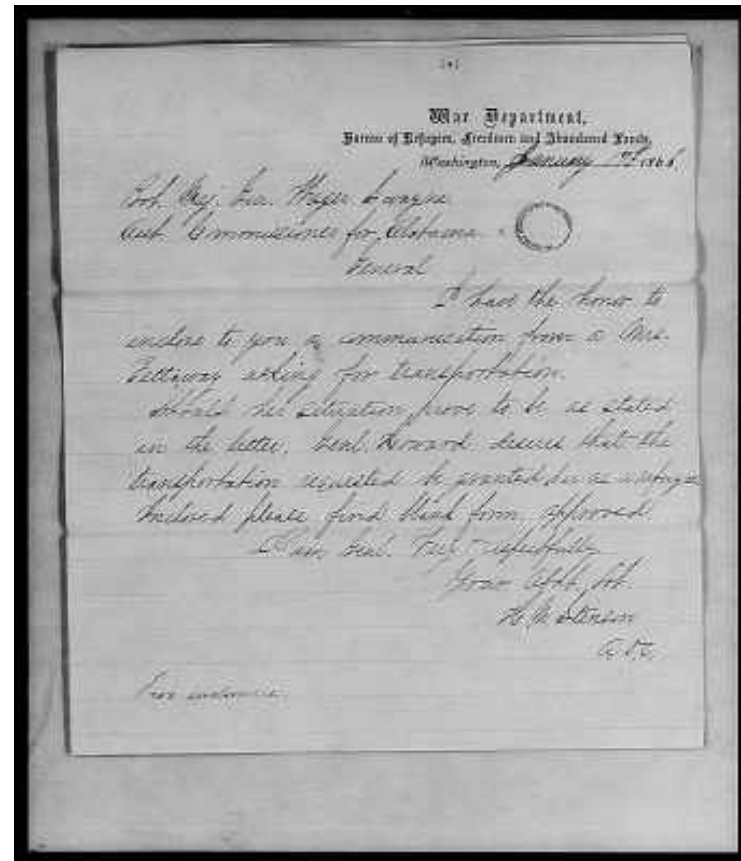 War Department,
Bureau of Refugees, Freedmen and Abandoned Lands,
Washington, January 1866.
Bvt. Maj. Gen. Wager Swayne
Asst. Commissioner for Alabama.
General
I have the honor to
inclose to you a communication from a Mrs.
Pettaway asking for transportation.
Should her situation prove to be as stated
in the letter, Genl. Howard desires that the
transportation requested be granted her as a refugee
Inclosed please find blank form, approved.
I am Genl. Very respectfully
Your Obt. Svt.
A.D.C.
Two inclosures.